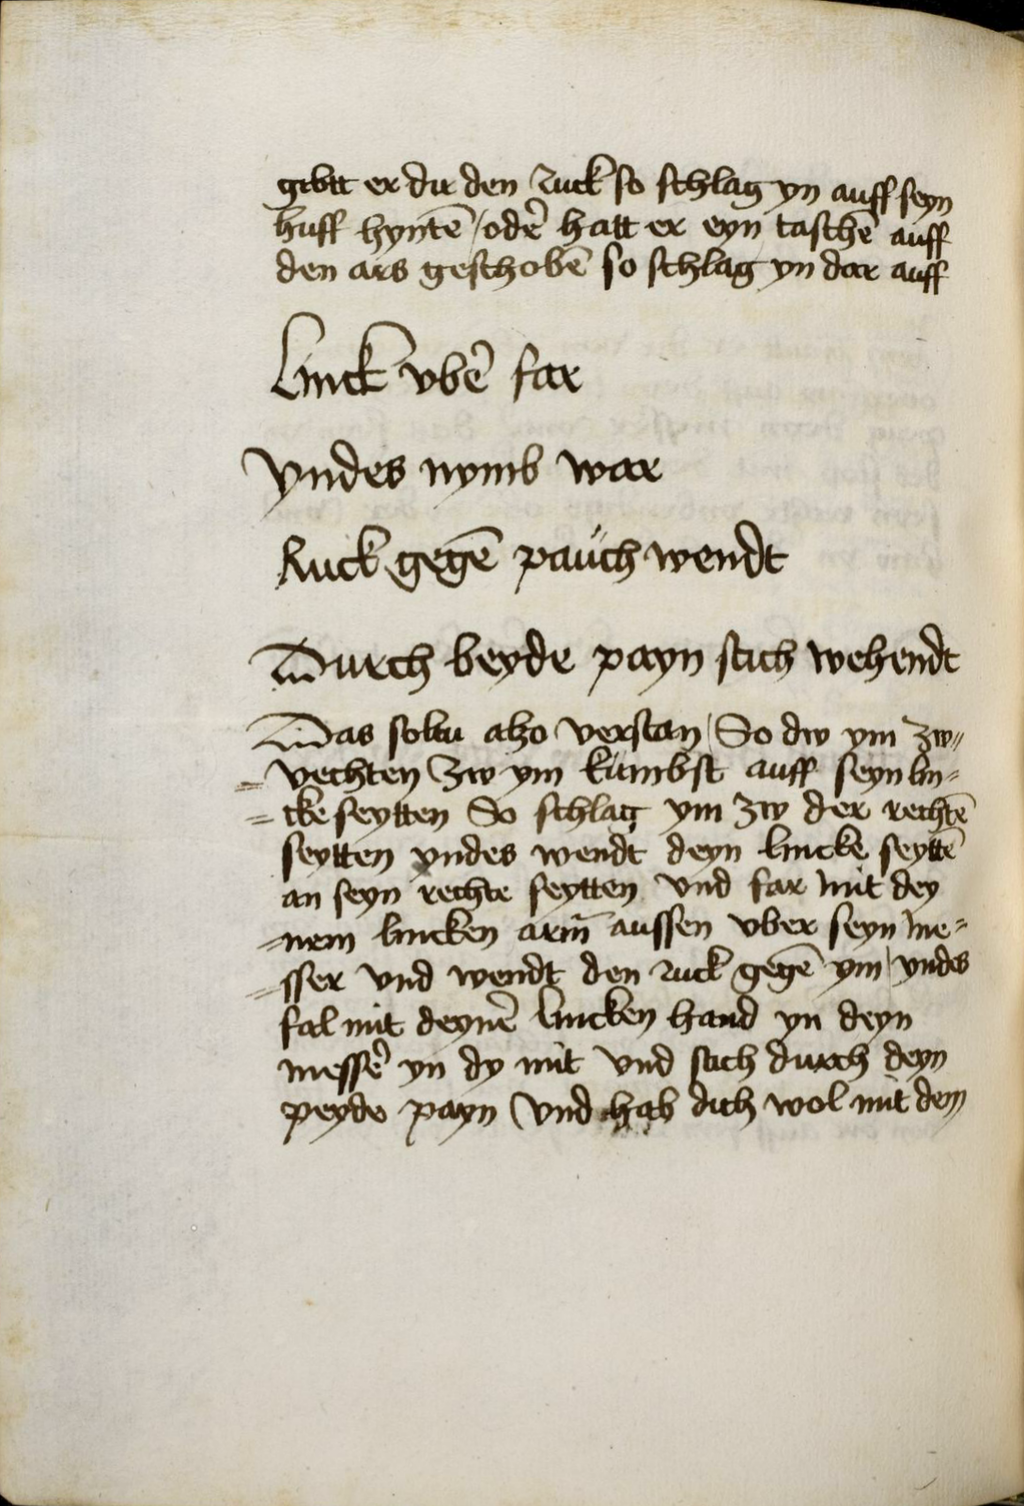 gibtt er dir den ruck so schlag yn auff seyn
huff hyntē / odē hatt er eyn taschē auff
den ars geschobē so schlag yn dar auff
Linck vbē far
Vndes nymb war
Ruck gegē paůch wendt
Durch beyde payn stich wehendt
Das soltu alzo verstan / So dw ym zw=
=vechten zw ym kumbst auff seyn lin=
=cke seytten So schlag ym zw der rechtē
seytten yndes wendt deyn lincke seyttē
an seyn rechte seytten vnd far mit dey
=nem lincken arm̄ aussen vber seyn me=
=sser vnd wendt den ruck gegē ym / yndes
fal mit deynē lincken hand yn deyn
messē yn dy mit vnd stich durch deyn
peyde payn vnd hab dich wol mit dem